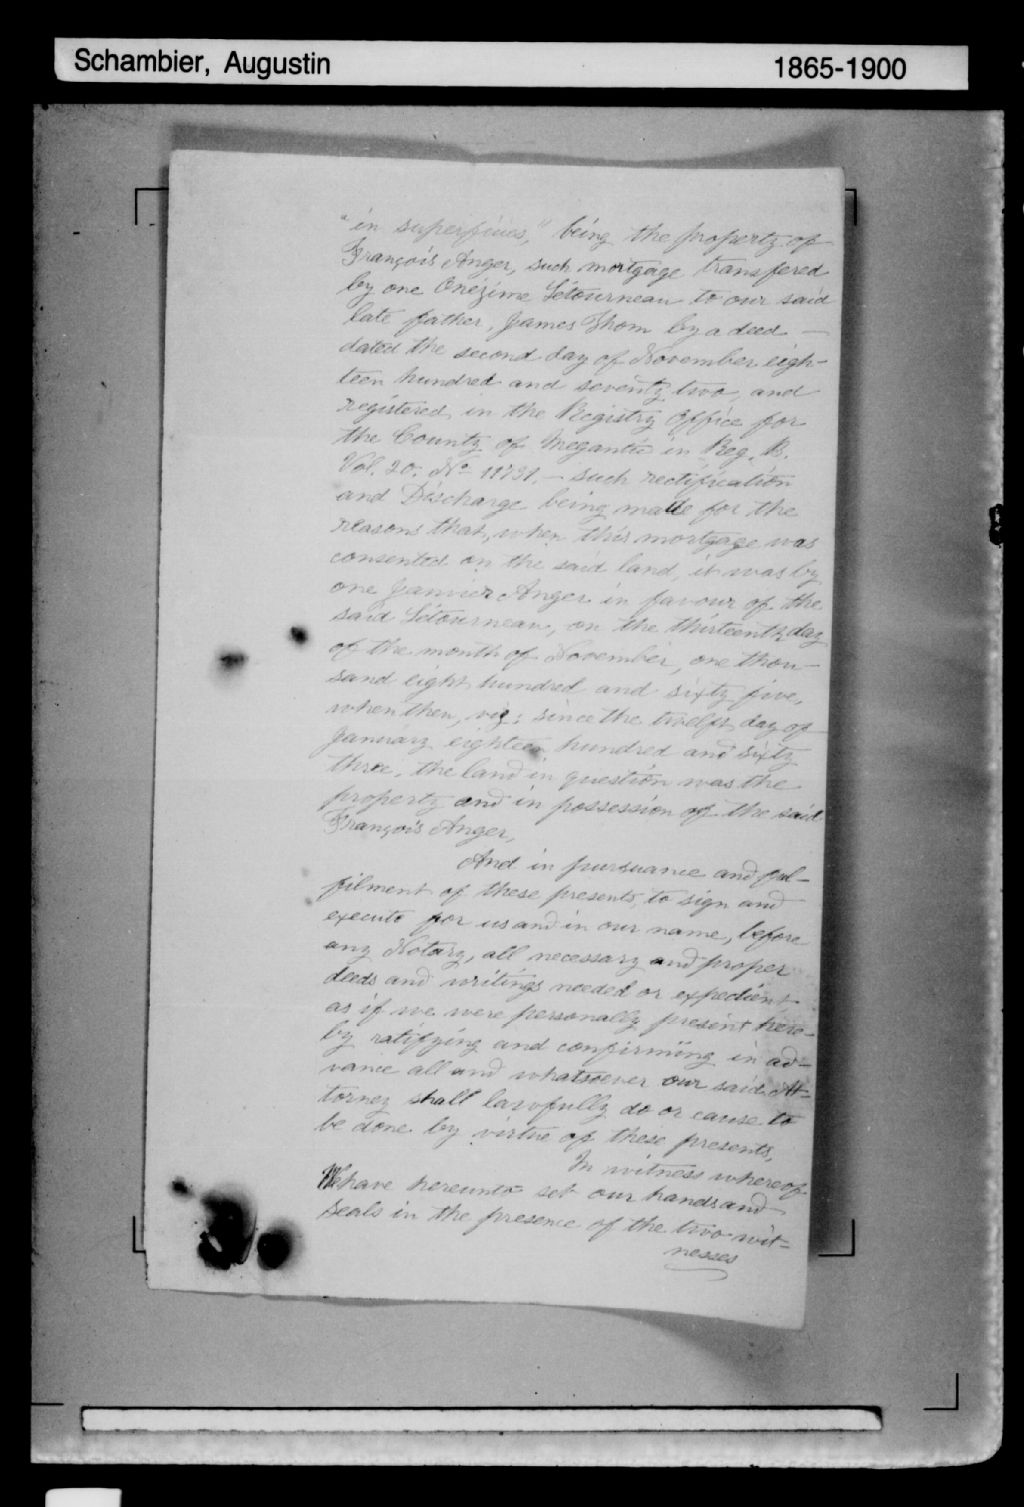 Schambier, Augustin 1865-1900
"in superficies," being the property of
François Anger, such mortgage transfered
by one Onézime Létourneau to our said
late father, James Thom by a deed —
dated the second day of November eigh-
teen hundred and seventy two, and
registered in the Registry Office for
the County of Megantic in Reg. B.
Vol. 20. No 11731. — such rectification
and Discharge being made for the
reasons that, when this mortgage was
consented on the said land, it was by
one Janvier Anger in favour of the
said Létourneau, on the thirteenth day
of the month of November, one thou-
sand eight hundred and sixty five,
when then, viz: since the twelfth day of
January eighteen hundred and sixty
three, the land in question was the
property and in possession of the said
François Anger,
And in pursuance and ful-
filment of these presents, to sign and
execute for us and in our name, before
any Notary, all necessary and proper
deeds and writings needed or expedient
as if we were personally present here-
by ratifying and confirming in ad-
vance all and whatsoever our said At-
torney shall lawfully do or cause to
be done by virtue of these presents,
In witness whereof
We have hereunto set our hands and
seals in the presence of the two wit-
nesses